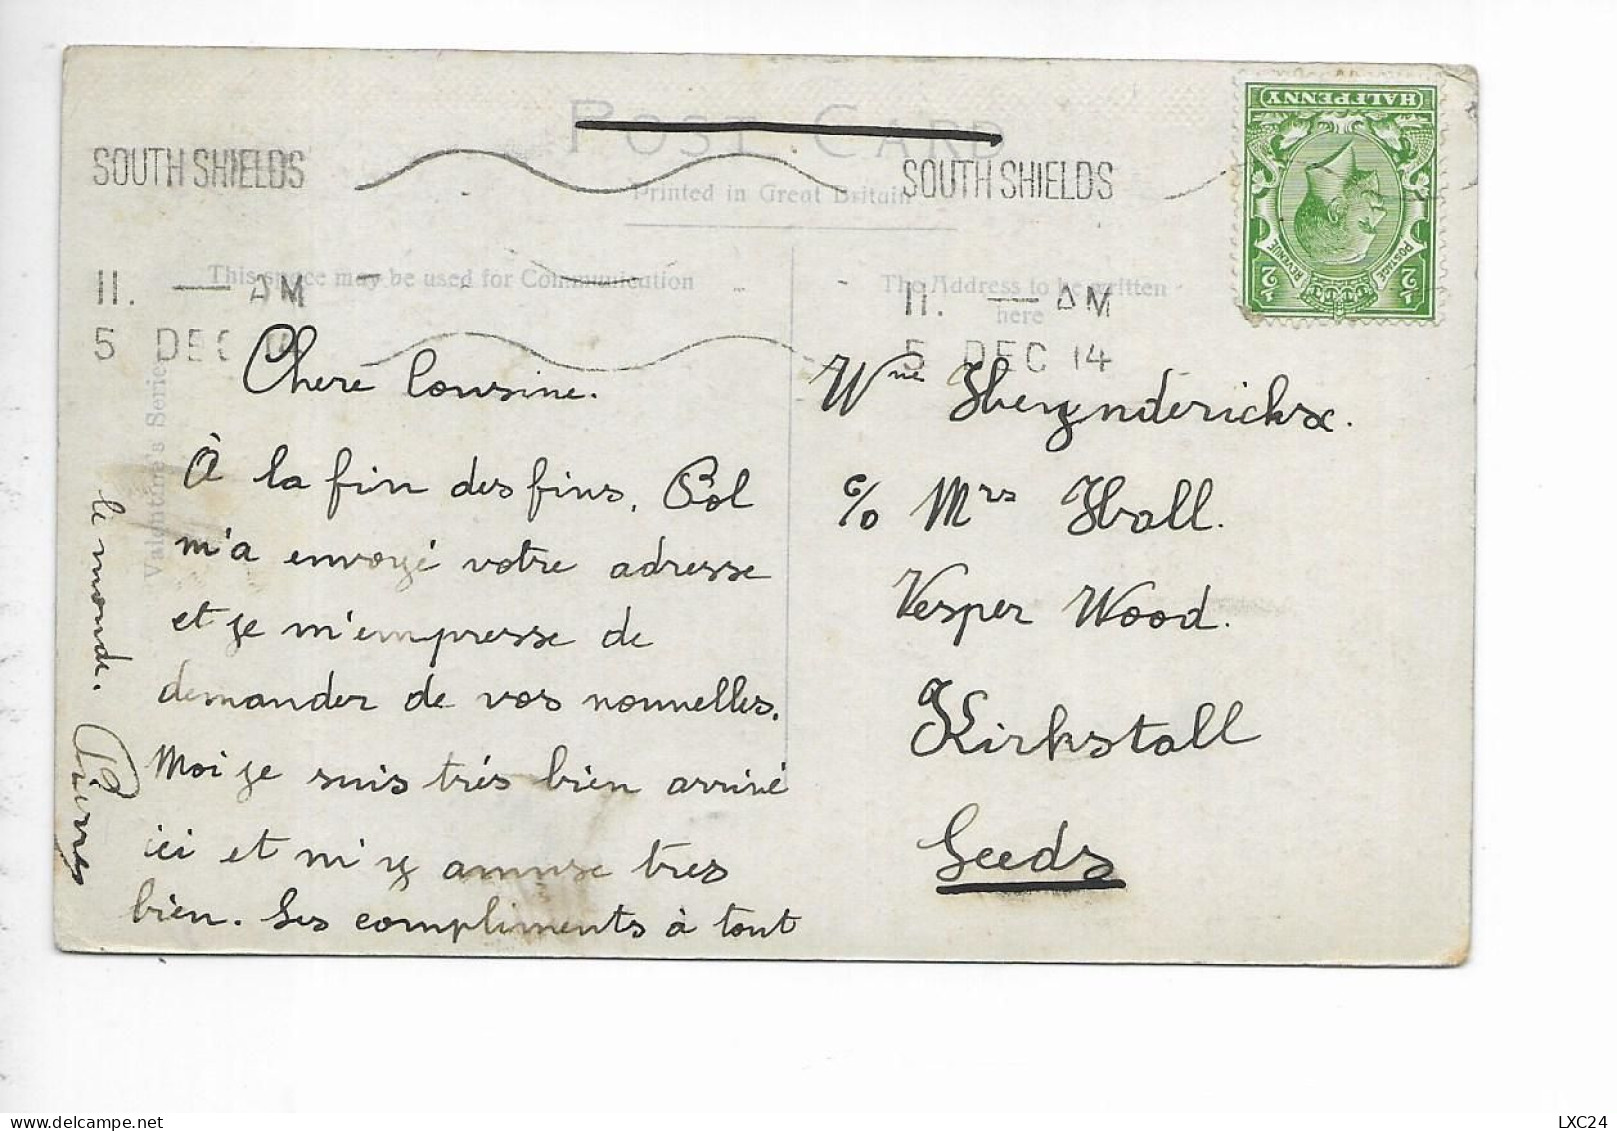 POST CARD
Printed in Great Britain
SOUTH SHIELDS
SOUTH SHIELDS
11. — AM
5 DEC 14
11. — AM
5 DEC 14
This space may be used for Communication
The Address to be written
here
HALFPENNY
½
½
REVENUE
POSTAGE
Valentine's Series
Chere Cousine.
À la fin des fins, Pol
m'a envoyé votre adresse
et je m'empresse de
demander de vos nounelles.
Moi je suis très bien arrivé
ici et m'y amuse tres
bien. Les compliments à tout
le monde. Pierre
Heynderickx.
c/o Mrs Hall.
Vesper Wood.
Kirkstall
Leeds
LXC24